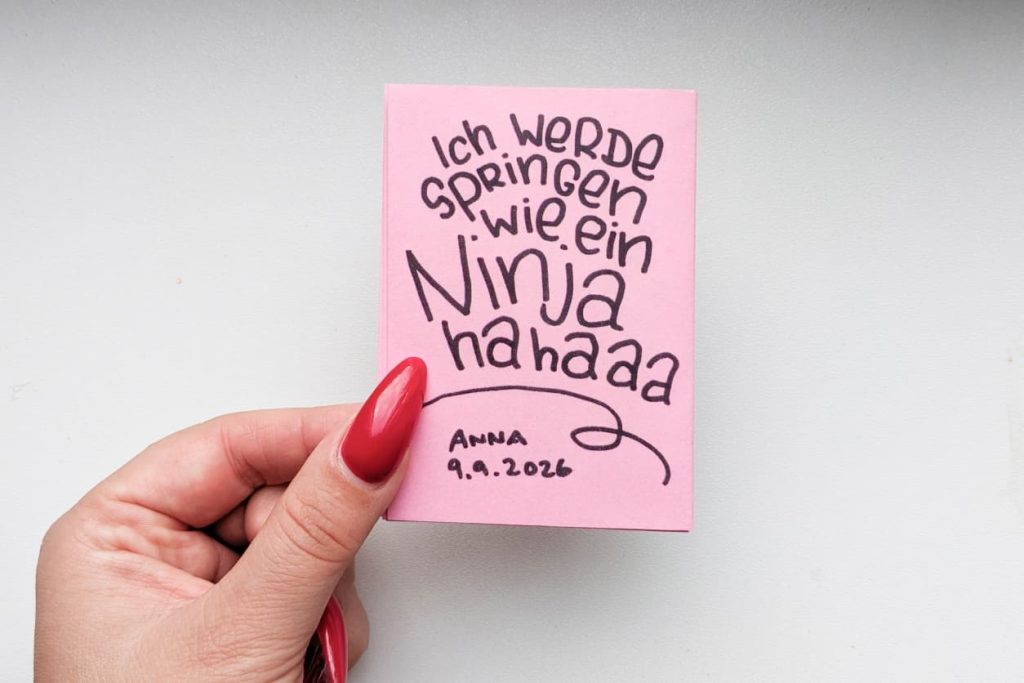 Ich werde
springen
wie ein
Ninja
hahaaa
Anna
9.9.2026